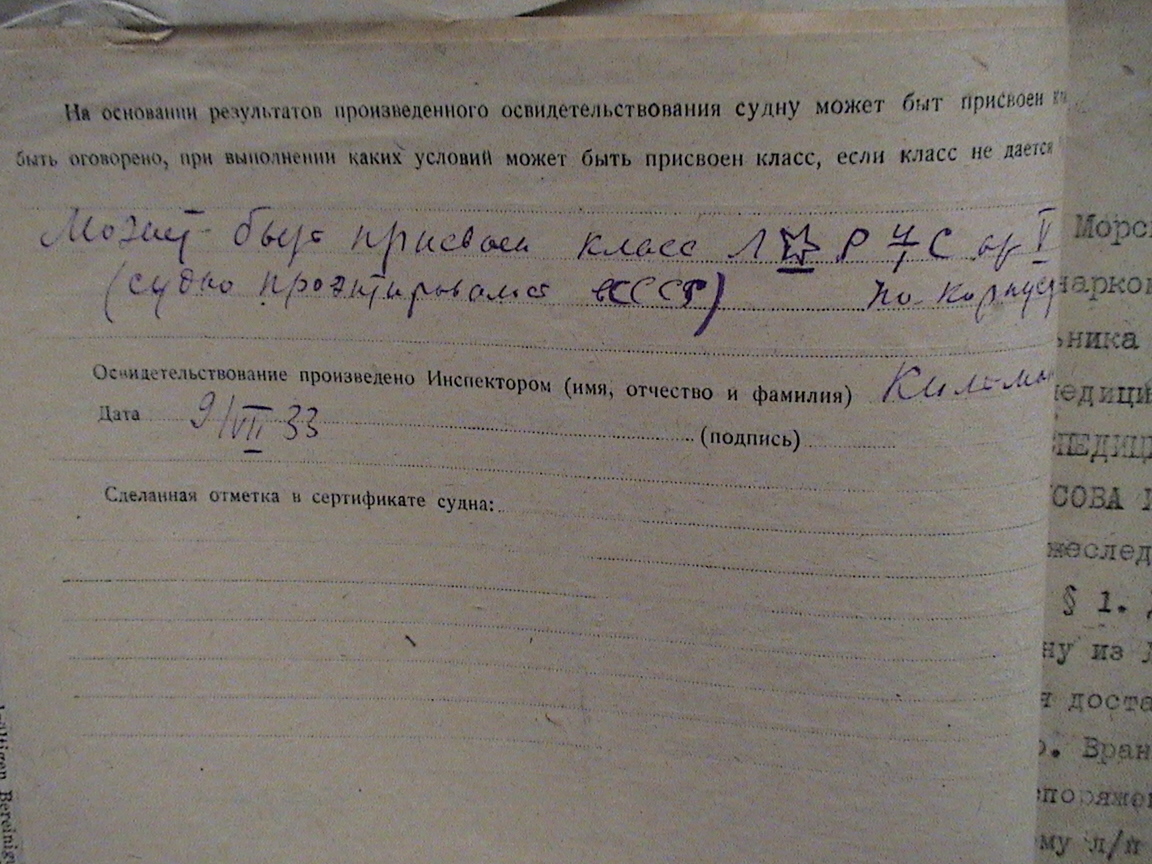 На основании результатов произведенного освидетельствования судну может быт присвоен
быть оговорено, при выполнении каких условий может быть присвоен класс, если класс не дается
Может быть присвоен класс Л Р С V
(судно проэктировалось в СССР) по корпусу
Освидетельствование произведено Инспектором (имя, отчество и фамилия)
Дата 9/VII 33 (подпись)
Сделанная отметка в сертификате судна:
Морс
нарком
ьника
педици
СПЕДИЦ
СОВА
жеслед
§ 1.
ну из
доста
о. Вран
споряже
ому л/п